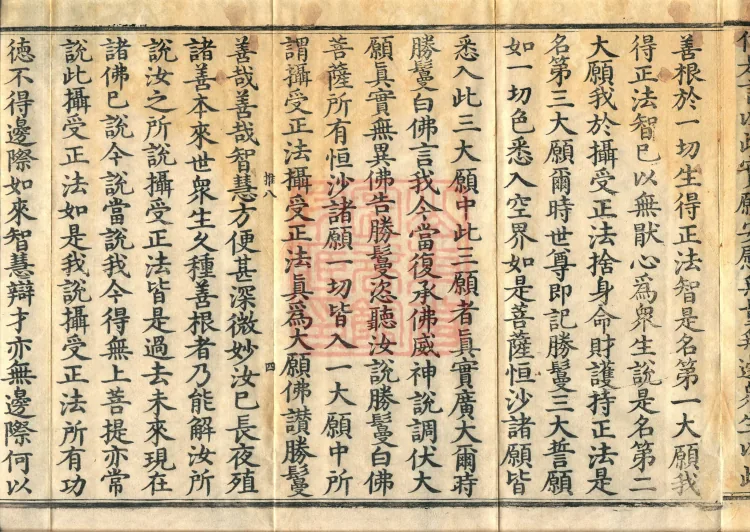 善根於一切生得正法智是名第一大願我
得正法智已以無猒心爲衆生說是名第二
大願我於攝受正法捨身命財護持正法是
名第三大願爾時世尊即記勝鬘三大誓願
如一切色悉入空界如是菩薩恒沙諸願皆
悉入此三大願中此三願者眞實廣大爾時
勝鬘白佛言我今當復承佛威神說調伏大
願眞實無異佛告勝鬘恣聽汝說勝鬘白佛
菩薩所有恒沙諸願一切皆入一大願中所
謂攝受正法攝受正法眞爲大願佛讃勝鬘
推八 四
善哉善哉智慧方便甚深微妙汝已長夜殖
諸善本來世衆生久種善根者乃能解汝所
說汝之所說攝受正法皆是過去未來現在
諸佛已說今說當說我今得無上菩提亦常
說此攝受正法如是我說攝受正法所有功
徳不得邊際如來智慧辯才亦無邊際何以